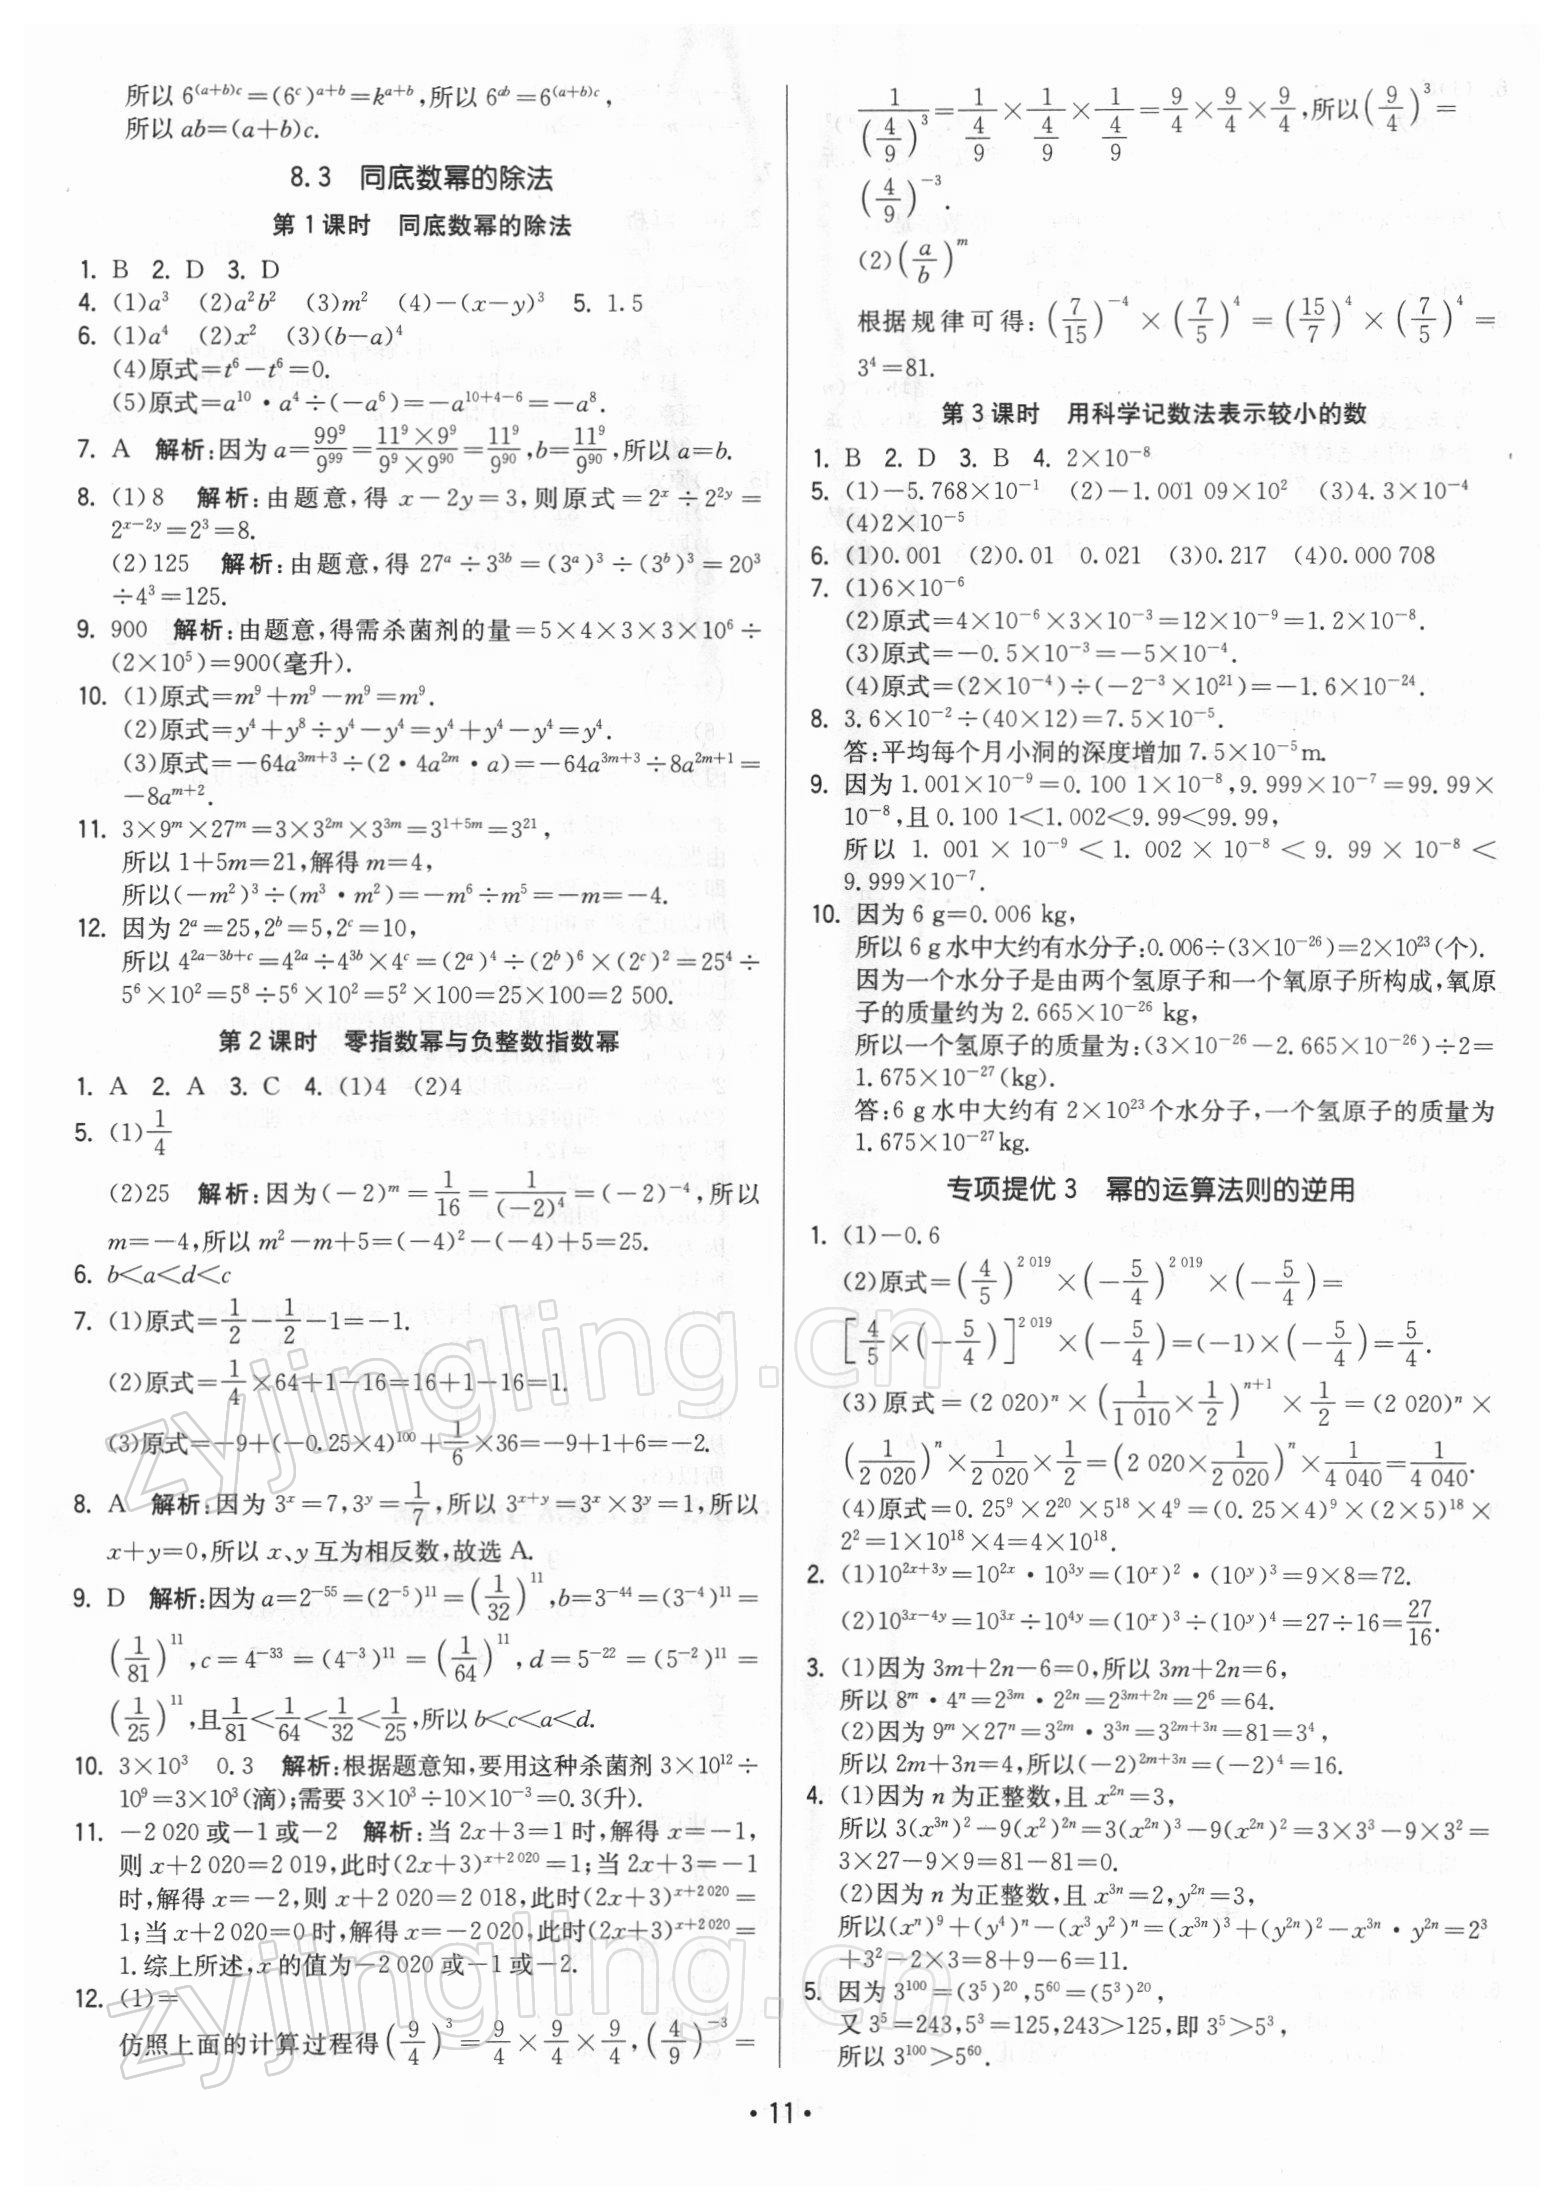 所以 6^{(a+b)c}=(6^c)^{a+b}=k^{a+b},所以 6^{ab}=6^{(a+b)c},
所以 ab=(a+b)c.
8.3 同底数幂的除法
第 1 课时 同底数幂的除法
1. B 2. D 3. D
4. (1)a³ (2)a²b² (3)m² (4)−(x−y)³ 5. 1.5
6. (1)a⁴ (2)x² (3)(b−a)⁴
(4)原式=t⁶−t⁶=0.
(5)原式=a¹⁰·a⁴÷(−a⁶)=−a^{10+4−6}=−a⁸.
7. A 解析:因为 a=99⁹/9⁹⁹=(11⁹×9⁹)/(9⁹×9⁹⁰)=11⁹/9⁹⁰,b=11⁹/9⁹⁰,所以 a=b.
8. (1)8 解析:由题意,得 x−2y=3,则原式=2^x÷2^{2y}=
2^{x−2y}=2³=8.
(2)125 解析:由题意,得 27^a÷3^{3b}=(3^a)³÷(3^b)³=20³
÷4³=125.
9. 900 解析:由题意,得需杀菌剂的量=5×4×3×3×10⁶÷
(2×10⁵)=900(毫升).
10. (1)原式=m⁹+m⁹−m⁹=m⁹.
(2)原式=y⁴+y⁸÷y⁴−y⁴=y⁴+y⁴−y⁴=y⁴.
(3)原式=−64a^{3m+3}÷(2·4a^{2m}·a)=−64a^{3m+3}÷8a^{2m+1}=
−8a^{m+2}.
11. 3×9^m×27^m=3×3^{2m}×3^{3m}=3^{1+5m}=3²¹,
所以 1+5m=21,解得 m=4,
所以(−m²)³÷(m³·m²)=−m⁶÷m⁵=−m=−4.
12. 因为 2^a=25,2^b=5,2^c=10,
所以 4^{2a−3b+c}=4^{2a}÷4^{3b}×4^c=(2^a)⁴÷(2^b)⁶×(2^c)²=25⁴÷
5⁶×10²=5⁸÷5⁶×10²=5²×100=25×100=2 500.
第 2 课时 零指数幂与负整数指数幂
1. A 2. A 3. C 4. (1)4 (2)4
5. (1)1/4
(2)25 解析:因为(−2)^m=1/16=1/(−2)⁴=(−2)⁻⁴,所以
m=−4,所以 m²−m+5=(−4)²−(−4)+5=25.
6. b<a<d<c
7. (1)原式=1/2−1/2−1=−1.
(2)原式=1/4×64+1−16=16+1−16=1.
(3)原式=−9+(−0.25×4)¹⁰⁰+1/6×36=−9+1+6=−2.
8. A 解析:因为 3^x=7,3^y=1/7,所以 3^{x+y}=3^x×3^y=1,所以
x+y=0,所以 x、y 互为相反数,故选 A.
9. D 解析:因为 a=2⁻⁵⁵=(2⁻⁵)¹¹=(1/32)¹¹,b=3⁻⁴⁴=(3⁻⁴)¹¹=
(1/81)¹¹,c=4⁻³³=(4⁻³)¹¹=(1/64)¹¹,d=5⁻²²=(5⁻²)¹¹=
(1/25)¹¹,且1/81<1/64<1/32<1/25,所以 b<c<a<d.
10. 3×10³ 0.3 解析:根据题意知,要用这种杀菌剂 3×10¹²÷
10⁹=3×10³(滴);需要 3×10³÷10×10⁻³=0.3(升).
11. −2 020 或−1 或−2 解析:当 2x+3=1 时,解得 x=−1,
则 x+2 020=2 019,此时(2x+3)^{x+2 020}=1;当 2x+3=−1
时,解得 x=−2,则 x+2 020=2 018,此时(2x+3)^{x+2 020}=
1;当 x+2 020=0 时,解得 x=−2 020,此时(2x+3)^{x+2 020}=
1.综上所述,x 的值为−2 020 或−1 或−2.
12. (1)=
仿照上面的计算过程得(9/4)³=9/4×9/4×9/4,(4/9)⁻³=
1/(4/9)³=1/(4/9)×1/(4/9)×1/(4/9)=9/4×9/4×9/4,所以(9/4)³=
(4/9)⁻³.
(2)(a/b)^m
根据规律可得:(7/15)⁻⁴×(7/5)⁴=(15/7)⁴×(7/5)⁴=
3⁴=81.
第 3 课时 用科学记数法表示较小的数
1. B 2. D 3. B 4. 2×10⁻⁸
5. (1)−5.768×10⁻¹ (2)−1.001 09×10² (3)4.3×10⁻⁴
(4)2×10⁻⁵
6. (1)0.001 (2)0.01 0.021 (3)0.217 (4)0.000 708
7. (1)6×10⁻⁶
(2)原式=4×10⁻⁶×3×10⁻³=12×10⁻⁹=1.2×10⁻⁸.
(3)原式=−0.5×10⁻³=−5×10⁻⁴.
(4)原式=(2×10⁻⁴)÷(−2⁻³×10²¹)=−1.6×10⁻²⁴.
8. 3.6×10⁻²÷(40×12)=7.5×10⁻⁵.
答:平均每个月小洞的深度增加 7.5×10⁻⁵m.
9. 因为 1.001×10⁻⁹=0.100 1×10⁻⁸,9.999×10⁻⁷=99.99×
10⁻⁸,且 0.100 1<1.002<9.99<99.99,
所以 1.001×10⁻⁹<1.002×10⁻⁸<9.99×10⁻⁸<
9.999×10⁻⁷.
10. 因为 6 g=0.006 kg,
所以 6 g 水中大约有水分子:0.006÷(3×10⁻²⁶)=2×10²³(个).
因为一个水分子是由两个氢原子和一个氧原子所构成,氧原
子的质量约为 2.665×10⁻²⁶ kg,
所以一个氢原子的质量为:(3×10⁻²⁶−2.665×10⁻²⁶)÷2=
1.675×10⁻²⁷(kg).
答:6 g 水中大约有 2×10²³个水分子,一个氢原子的质量为
1.675×10⁻²⁷kg.
专项提优 3 幂的运算法则的逆用
1. (1)−0.6
(2)原式=(4/5)^{2 019}×(−5/4)^{2 019}×(−5/4)=
[4/5×(−5/4)]^{2 019}×(−5/4)=(−1)×(−5/4)=5/4.
(3)原式=(2 020)^n×(1/1 010×1/2)^{n+1}×1/2=(2 020)^n×
(1/2 020)^n×1/2 020×1/2=(2 020×1/2 020)^n×1/4 040=1/4 040.
(4)原式=0.25⁹×2²⁰×5¹⁸×4⁹=(0.25×4)⁹×(2×5)¹⁸×
2²=1×10¹⁸×4=4×10¹⁸.
2. (1)10^{2x+3y}=10^{2x}·10^{3y}=(10^x)²·(10^y)³=9×8=72.
(2)10^{3x−4y}=10^{3x}÷10^{4y}=(10^x)³÷(10^y)⁴=27÷16=27/16.
3. (1)因为 3m+2n−6=0,所以 3m+2n=6,
所以 8^m·4^n=2^{3m}·2^{2n}=2^{3m+2n}=2⁶=64.
(2)因为 9^m×27^n=3^{2m}·3^{3n}=3^{2m+3n}=81=3⁴,
所以 2m+3n=4,所以(−2)^{2m+3n}=(−2)⁴=16.
4. (1)因为 n 为正整数,且 x^{2n}=3,
所以 3(x^{3n})²−9(x²)^{2n}=3(x^{2n})³−9(x^{2n})²=3×3³−9×3²=
3×27−9×9=81−81=0.
(2)因为 n 为正整数,且 x^{3n}=2,y^{2n}=3,
所以(x^n)⁹+(y⁴)^n−(x³y²)^n=(x^{3n})³+(y^{2n})²−x^{3n}·y^{2n}=2³
+3²−2×3=8+9−6=11.
5. 因为 3¹⁰⁰=(3⁵)²⁰,5⁶⁰=(5³)²⁰,
又 3⁵=243,5³=125,243>125,即 3⁵>5³,
所以 3¹⁰⁰>5⁶⁰.
·11·
zyjingling.cn
zyjingling.cn